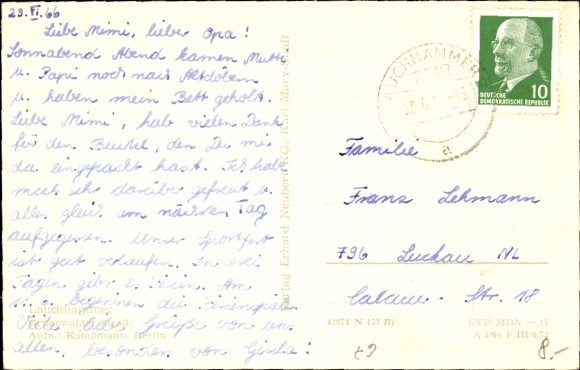 29. VI. 66
Liebe Mimi, lieber Opa!
Sonnabend Abend kamen Mutti
u. Papi noch nach Altdöbern
u. haben mein Bett geholt.
Liebe Mimi, hab vielen Dank
für den Beutel, den Du mir
da eingepackt hast. Ich habe
mich sehr darüber gefreut u.
alles gleich am nächsten Tag
aufgegessen. Unser Sportfest
ist gut verlaufen. In drei
Tagen gibt es Ferien. Am
beginnen die Ferienspiele.
Viele liebe Grüße von uns
allen, besonders von
Lauchhammer
Aufn.: Kampmann, Berlin
Verlag Erhard Neubert K.G. Karl-Marx-Stadt
LAUCHHAMMER
a
10
DEUTSCHE
DEMOKRATISCHE REPUBLIK
Familie
Franz Lehmann
796 Luckau NL
Calauer-Str. 18
42974 N (57 B)
EVP MDN -,15
8.-